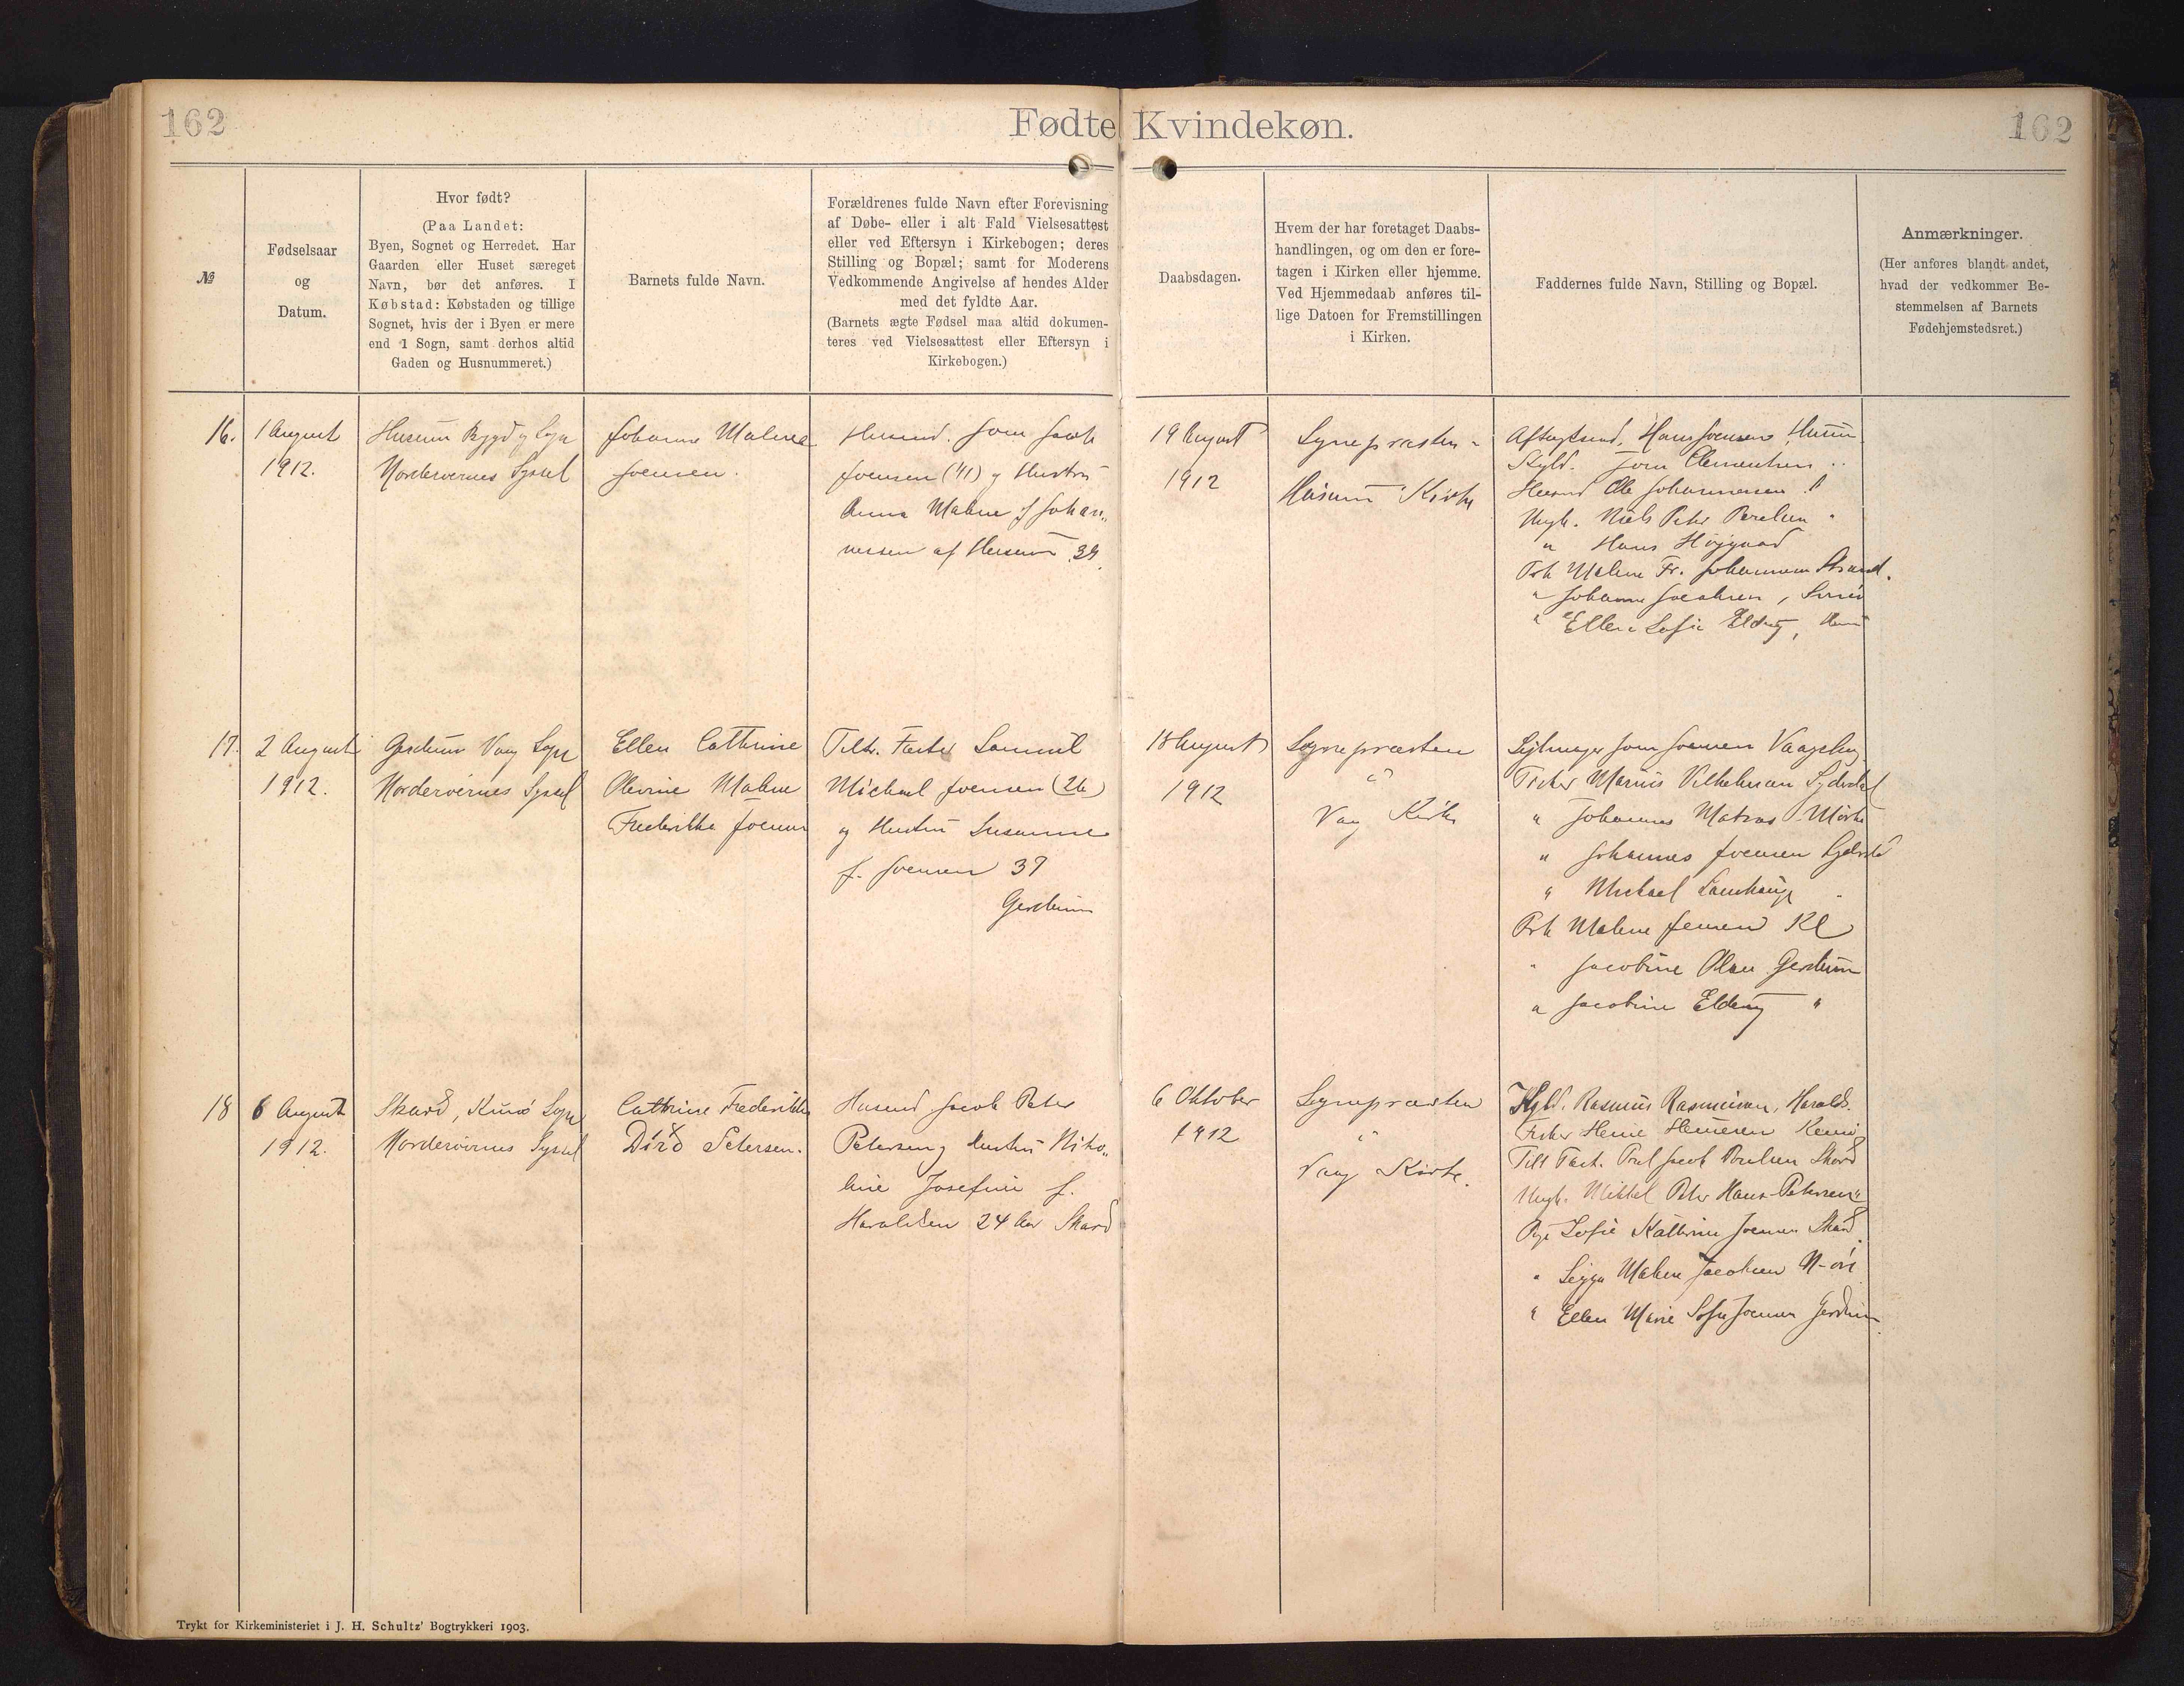 162
Fødte Kvindekøn.
162
№
Fødselsaar
og
Datum.
Hvor født?
(Paa Landet:
Byen, Sognet og Herredet. Har
Gaarden eller Huset særeget
Navn, bør det anføres. I
Købstad: Købstaden og tillige
Sognet, hvis der i Byen er mere
end 1 Sogn, samt derhos altid
Gaden og Husnummeret.)
Barnets fulde Navn.
Forældrenes fulde Navn efter Forevisning
af Døbe- eller i alt Fald Vielsesattest
eller ved Eftersyn i Kirkebogen; deres
Stilling og Bopæl; samt for Moderens
Vedkommende Angivelse af hendes Alder
med det fyldte Aar.
(Barnets ægte Fødsel maa altid dokumen-
teres ved Vielsesattest eller Eftersyn i
Kirkebogen.)
Daabsdagen.
Hvem der har foretaget Daabs-
handlingen, og om den er fore-
tagen i Kirken eller hjemme.
Ved Hjemmedaab anføres til-
lige Datoen for Fremstillingen
i Kirken.
Faddernes fulde Navn, Stilling og Bopæl.
Anmærkninger.
(Her anføres blandt andet,
hvad der vedkommer Be-
stemmelsen af Barnets
Fødehjemstedsret.)
16.
1 August
1912.
Husum Bygd og Sogn
Norderøernes Syssel
Johanne Malene
Joensen.
Husmd. Joen Jacob
Joensen (41) og Hustru
Anna Malene f Johan„
nesen af Husum 39.
19 August
1912
Sognepræsten "
Husum Kirke
Aftægtsmd. Hans Joensen, Husum
Joen Clementsen "
Husmd Ole Johannesen "
Ungk. Niels Peter Poulsen "
" Hans Højgaard
Malene Fr. Johannesen Strand.
" Johanne Jacobsen,
" Ellen Sofie Eldevig,
17.
2 August
1912.
Gerdum Vaag Sogn
Norderøernes Syssel
Ellen Cathrine
Olevine Malene
Frederikke Joensen
Fæster Samuel
Michael Joensen (26)
og Hustru Susanne
f. Joensen 37
Gerdum
18 August
1912
Sognepræsten
"
Vaag Kirke
Joen Joensen
Fisker Marius Vilhelmsen Syderdal
" Johannes Matras
" Johannes Joensen Syderdal
" Michael "
Malene Joensen Kl
" Jacobine Olsen Gerdum
" Jacobine Eldevig "
18
6 August
1912.
Skard, Kunø Sogn
Norderøernes Syssel
Cathrine Frederikke
Petersen.
Husmd Jacob Peter
Petersen og Hustru Niko„
line Josefine f.
Haraldsen 24 Aar Skard
6 Oktober
1912
Sognepræsten
"
Vaag Kirke.
Rasmus Rasmussen, Haralds.
Fisker Heine Heinesen Kunø
Poul Jacob Poulsen Skard
Ungk. Mikkel Peter Hans Petersen "
Pige Sofie Kathrine Joensen Skard
" Sigga Malene Jacobsen
" Ellen Marie Sofie Joensen Gerdum
Trykt for Kirkeministeriet i J. H. Schultz' Bogtrykkeri 1903.